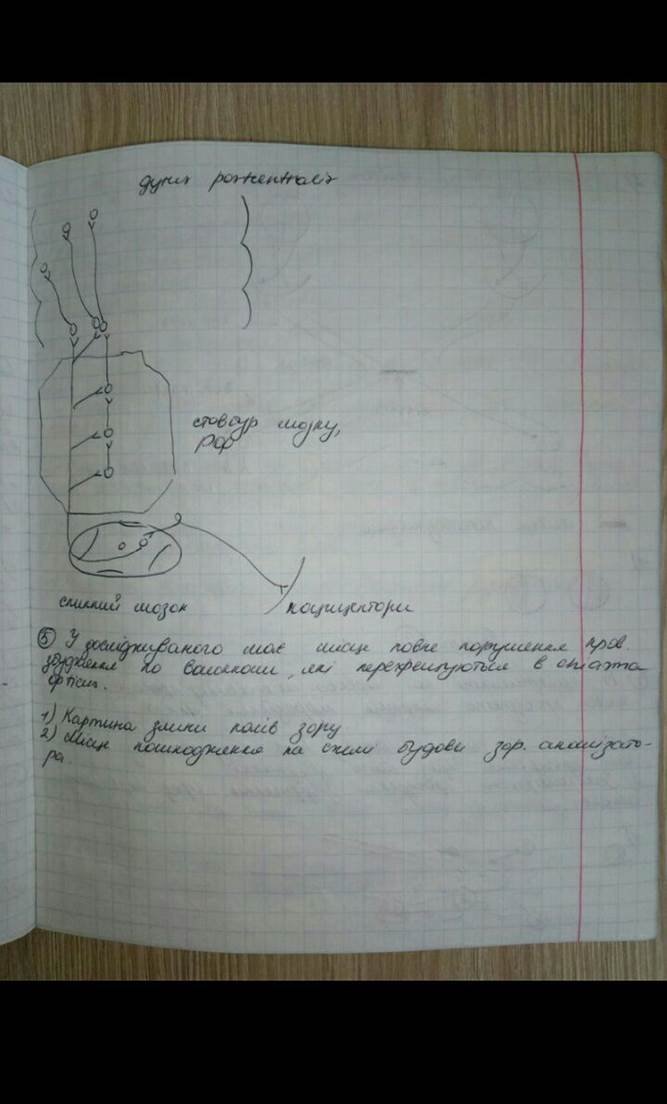 gyrus postcentralis
стовбур мозку,
РФ
спинний мозок ноцицептори
⑤ У досліджуваного має місце повне порушення пров.
збудження по волокнам, які перехрещуються в chiasma
opticum.
1) Картина зміни полів зору
2) Місце пошкодження на схемі будови зор. аналізато-
ра.